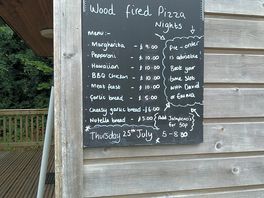 Wood fired Pizza
Nights
Menu:-
- Margharita - £9.00
- Pepperoni - £10.00
- Hawaiian - £10.00
- BBQ Chicken - £10.00
- Meat feast - £10.00
- Garlic bread - £5.00
- cheesy garlic bread - £6.00
- Nutella bread - £5.00
Pre-order
is advisable!
Book your
time slot
with Daniel
or Gemma
Add Jalapeno's
for 50p
Thursday 25th July 5-8:00